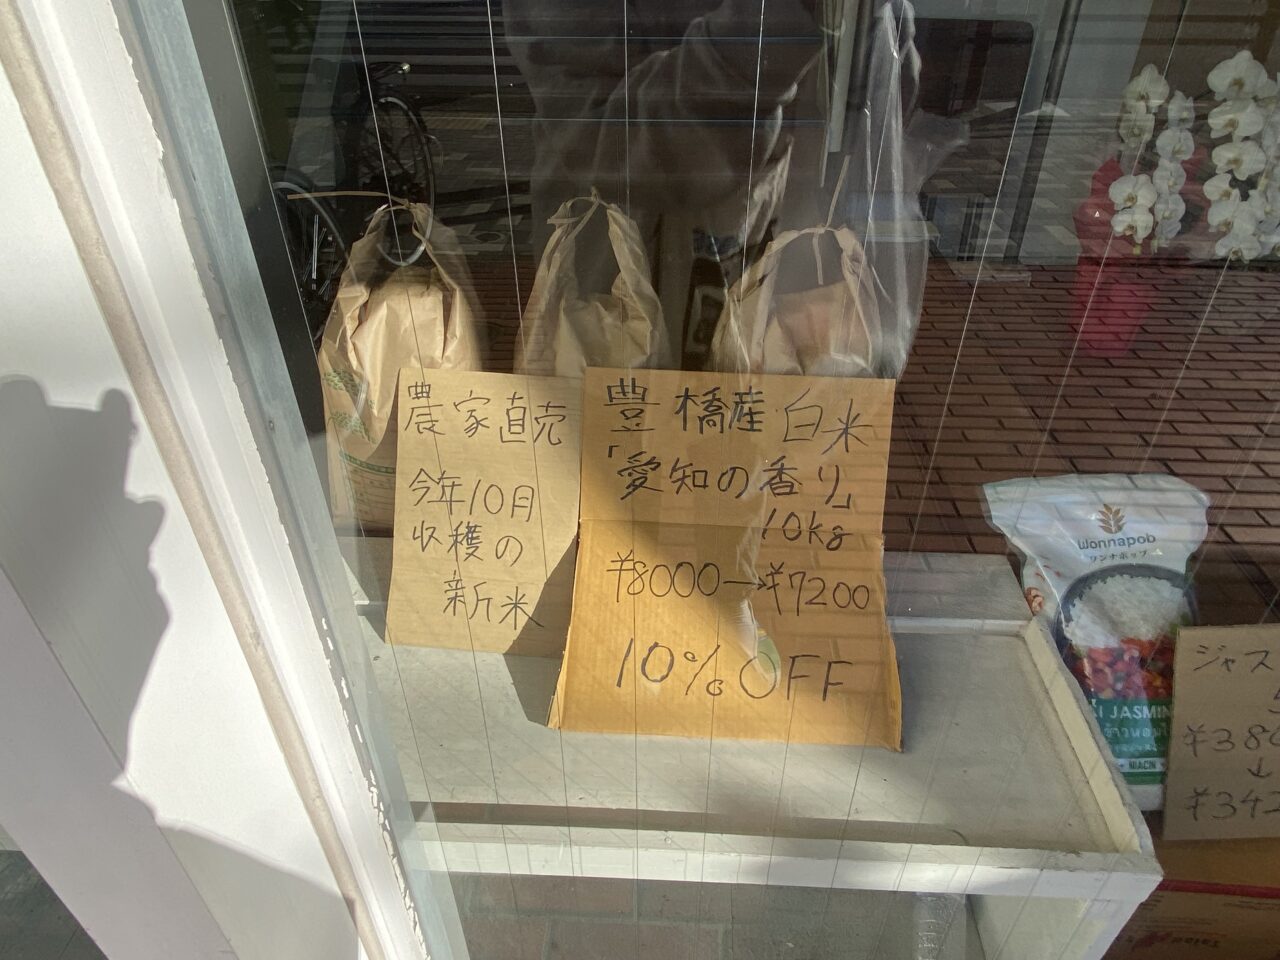 農家直売
今年10月
収穫の
新米
豊橋産白米
「愛知の香り」
10kg
¥8000→¥7200
10%OFF
Wonnapob
ワンナポップ
JASMIN
ข้าวหอม
NIACIN
ジャス
¥380
↓
¥342